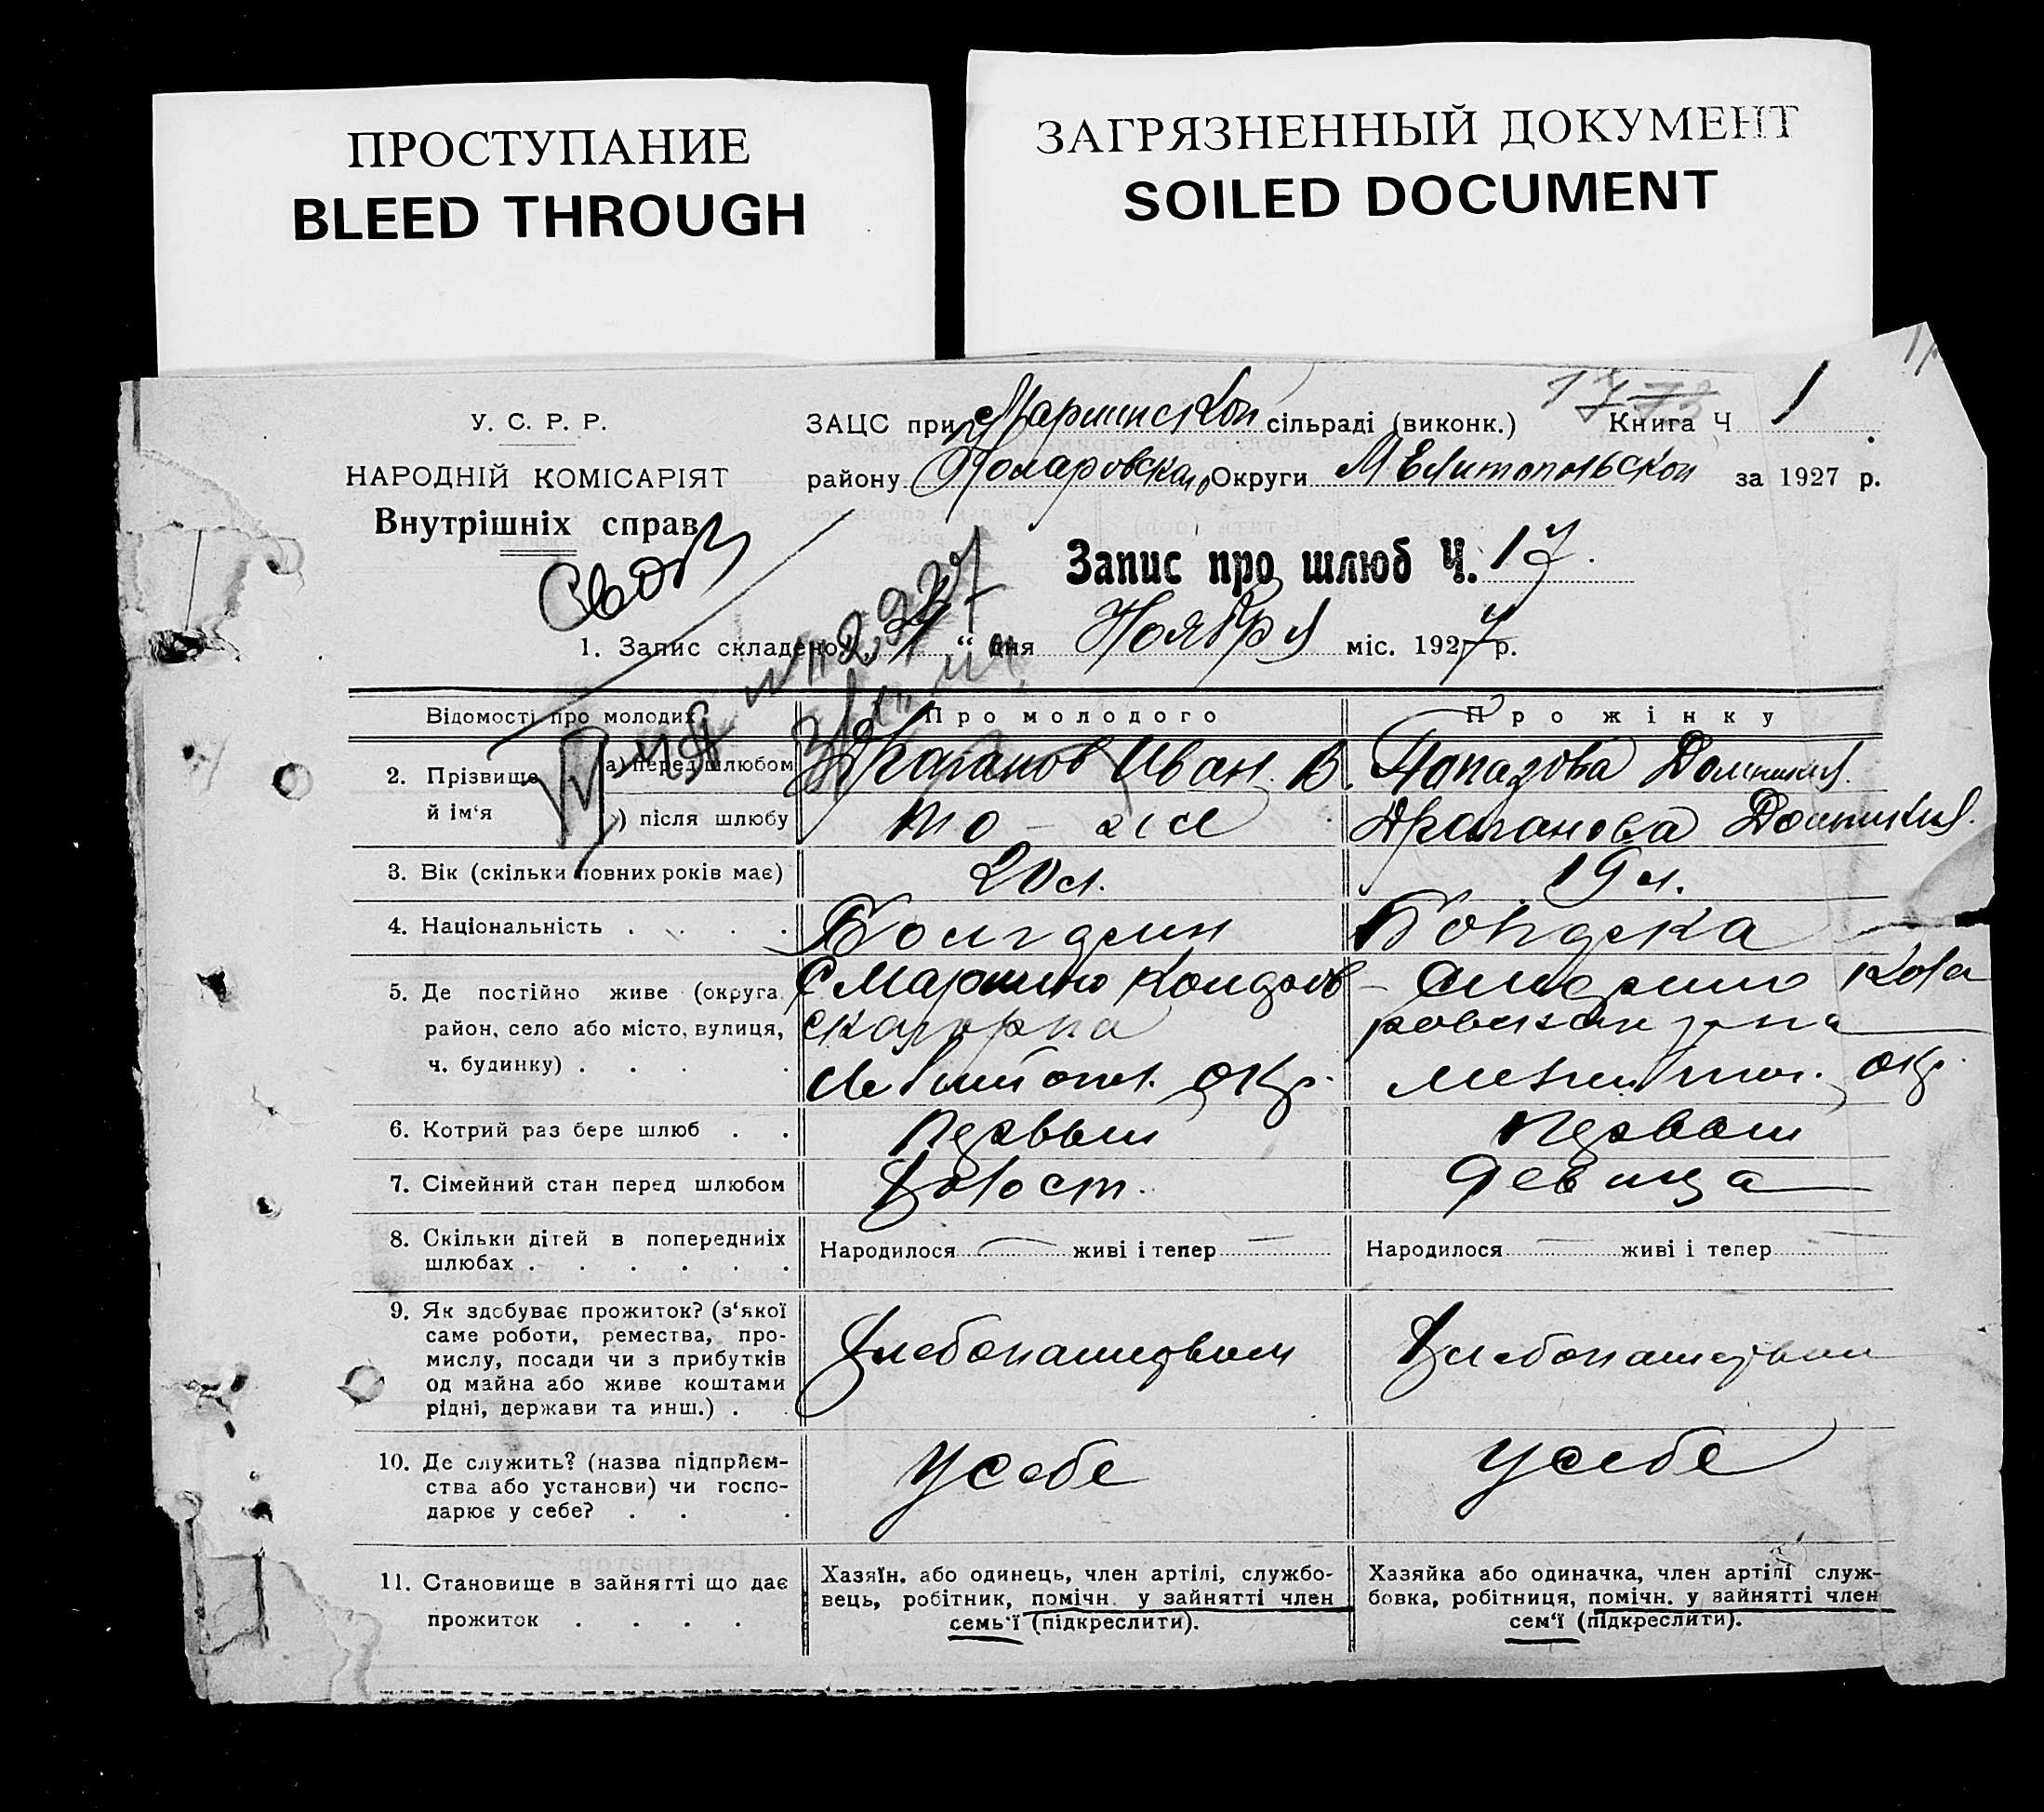 ПРОСТУПАНИЕ
BLEED THROUGH
ЗАГРЯЗНЕННЫЙ ДОКУМЕНТ
SOILED DOCUMENT
У. С. Р. Р.
НАРОДНІЙ КОМІСАРІЯТ
Внутрішніх справ
ЗАЦС при Мариинской сільраді (виконк.) Книга Ч 1
району Округи Мелитопольской за 1927 р.
Запис про шлюб Ч. 17.
1. Запис складено „ “ дня Ноября міс. 1927 р.
Відомості про молодих
Про молодого
Про жінку
2. Прізвище й ім‘я
а) перед шлюбом
Драганов Иван В.
Папазова Домникия.
) після шлюбу
то-же
Драганова Домникия.
3. Вік (скільки повних років має)
20 л.
19 л.
4. Національність . . . .
Болгарин
Болгарка
5. Де постійно живе (округа,
район, село або місто, вулиця,
ч. будинку) . . . .
окр.
окр.
6. Котрий раз бере шлюб . .
Первый
Первый
7. Сімейний стан перед шлюбом
Холост.
девица
8. Скільки дітей в попередниіх
шлюбах . . . . . .
Народилося живі і тепер
Народилося живі і тепер
9. Як здобуває прожиток? (з‘якої
саме роботи, ремества, про-
мислу, посади чи з прибутків
од майна або живе коштами
рідні, держави та инш.) .
Хлебопашеством
Хлебопашеством
10. Де служить? (назва підприєм-
ства або установи) чи госпо-
дарює у себе? . . .
У себе
У себе
11. Становище в зайнятті що дає
прожиток . . . .
Хазяїн, або одинець, член артілі, службо-
вець, робітник, помічн. у зайнятті член
семь‘ї (підкреслити).
Хазяйка або одиначка, член артілі служ-
бовка, робітниця, помічн. у зайнятті член
сем‘ї (підкреслити).